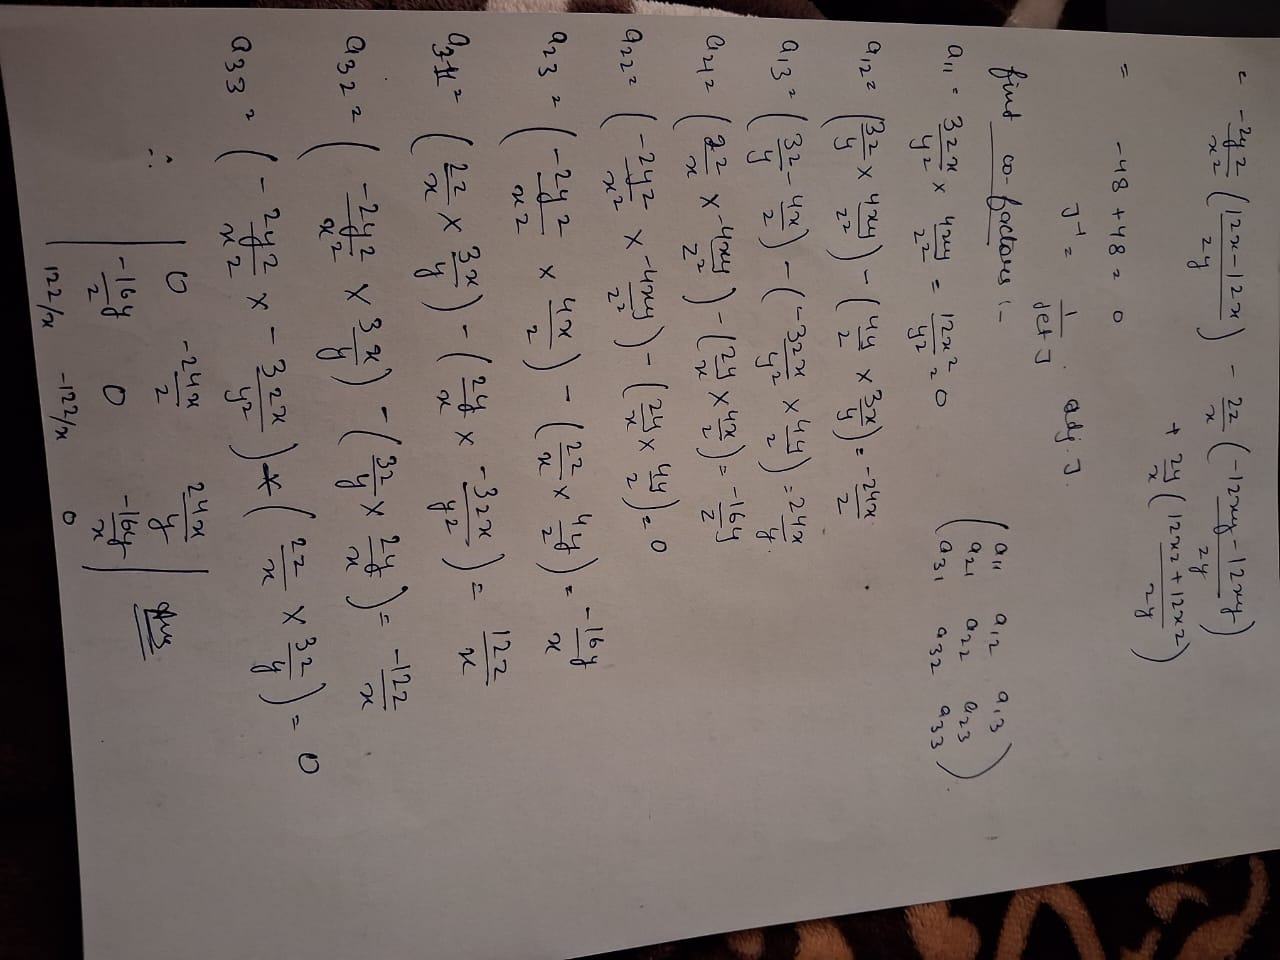 = -2yz/x2 (12x-12x/2y) - 2z/x (-12xy-12xy/2y)
+ 2y/x (12xz+12xz/2y)
= -48 +48 = 0
J-1 = 1/det J . adj. J.
find co-factors :-
(a11 a12 a13
a21 a22 a23
a31 a32 a33).
a11 = 3zx/y2 x 4xy/z2 = 12x2/yz = 0
a12 = (3z/y x 4xy/z2) - (4y/z x 3x/y) = -24x/z
a13 = (3z/y - 4x/z) - (-3zx/y2 x 4y/z) = 24x/y.
a21 = (2z/x x -4xy/z2) - (2y/x x 4x/z) = -16y/z
a22 = (-2yz/x2 x -4xy/z2) - (2y/x x 4y/z) = 0
a23 = (-2yz/x2 x 4x/z) - (2z/x x 4y/z) = -16y/x
a31 = (2z/x x 3x/y) - (2y/x x -3zx/y2) = 12z/x
a32 = (-2yz/x2 x 3x/y) - (3z/y x 2y/x) = -12z/x
a33 = (-2yz/x2 x -3zx/y2) x (2z/x x 3z/y) = 0
∴ | 0 -24x/z 24x/y | Ans
| -16y/z 0 -16y/x |
| 12z/x -12z/x 0